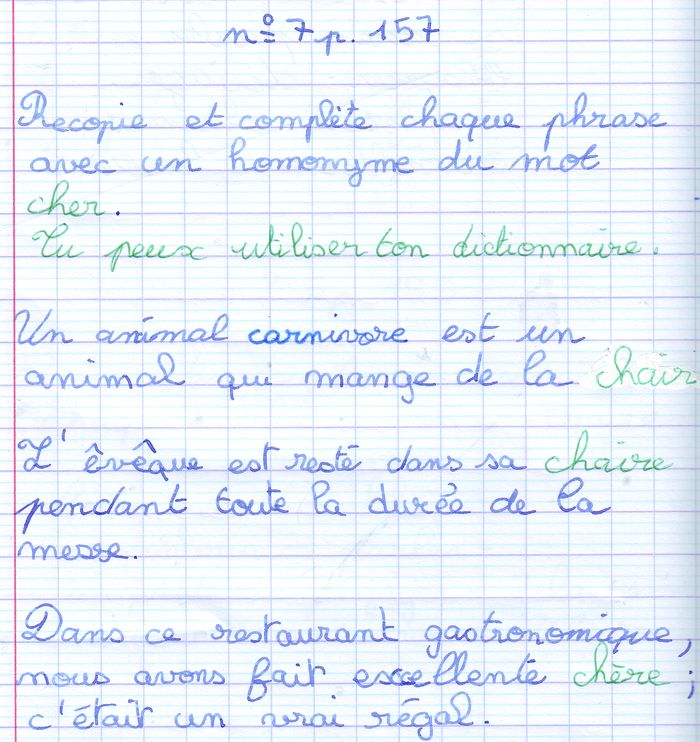 n° 7 p. 157
Recopie et complète chaque phrase
avec un homonyme du mot
cher.
Tu peux utiliser ton dictionnaire.
Un animal carnivore est un
animal qui mange de la chair
L'êvêque est resté dans sa chaire
pendant toute la durée de la
messe.
Dans ce restaurant gastronomique,
nous avons fait excellente chère ;
c'était un vrai régal.